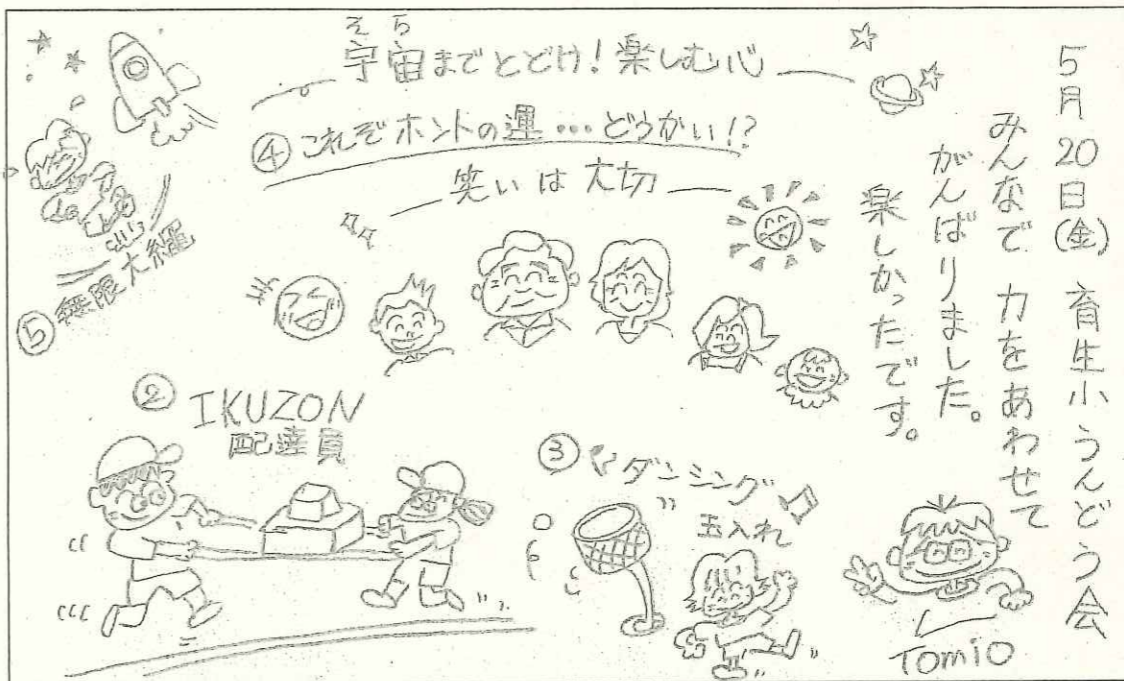 5月20日(金) 育生小うんどう会
みんなで 力をあわせて
がんばりました。
楽しかったです。
そら
宇宙までとどけ!楽しむ心
④これぞホントの運…どうかい!?
笑いは大切
⑤無限大縄
② IKUZON
配達員
③ダンシング
玉入れ
Tomio